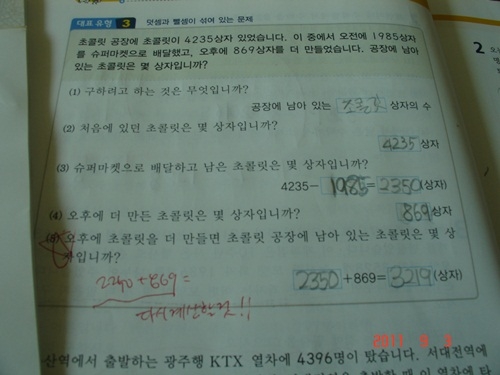 대표 유형 3 덧셈과 뺄셈이 섞여 있는 문제
초콜릿 공장에 초콜릿이 4235상자 있었습니다. 이 중에서 오전에 1985상자
를 슈퍼마켓으로 배달했고, 오후에 869상자를 더 만들었습니다. 공장에 남아
있는 초콜릿은 몇 상자입니까?
(1) 구하려고 하는 것은 무엇입니까?
공장에 남아 있는 초콜릿 상자의 수
(2) 처음에 있던 초콜릿은 몇 상자입니까?
4235 상자
(3) 슈퍼마켓으로 배달하고 남은 초콜릿은 몇 상자입니까?
4235- 1985 = 2350 (상자)
(4) 오후에 더 만든 초콜릿은 몇 상자입니까?
869 상자
(5) 오후에 초콜릿을 더 만들면 초콜릿 공장에 남아 있는 초콜릿은 몇 상
자입니까?
2350 +869= 3219 (상자)
+869=
다시 계산할 것!!
산역에서 출발하는 광주행 KTX 열차에 4396명이 탔습니다. 서대전역에
2
2011